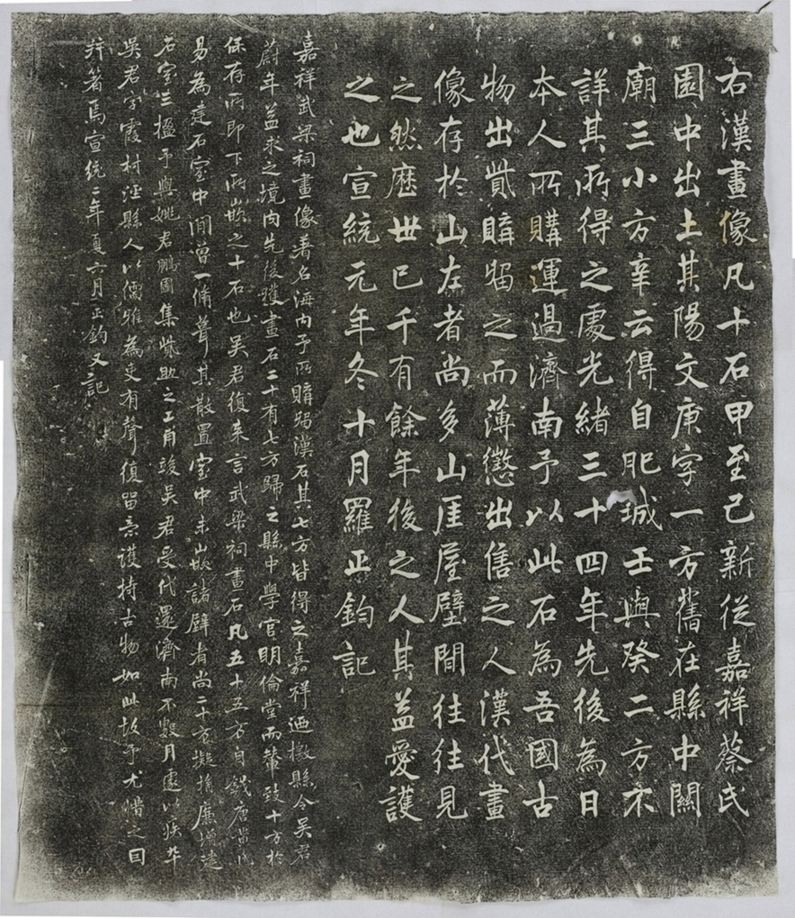 右漢畫像凡十石甲至己新從嘉祥蔡氏
園中出土其陽文庚字一方舊在縣中關
廟三小方辛云得自肥城壬與癸二方不
詳其所得之處光緒三十四年先後為日
本人所購運過濟南予以此石為吾國古
物出貲購留之而薄懲出售之人漢代畫
像存於山左者尚多山厓屋壁間往往見
之然歷世已千有餘年後之人其益愛護
之也宣統元年冬十月羅正鈞記
嘉祥武梁祠畫像著名海內予所購留漢石其七方皆得之嘉祥迺檄縣令吳君
蔚年益求之境內先後獲畫石二十有七方歸之縣中學官明倫堂而輦致十方於
保存所即下所嵌之十石也吳君復來言武梁祠畫石凡五十五方自錢唐黃氏
易為建石室中間曾一脩葺其散置室中未嵌諸壁者尚二十方擬捐廉增建
石室三楹予與姚君鵬圖集貲助之工甫竣吳君受代還濟南不數月遽以疾卒
吳君字霞村涇縣人以儒雅為吏有聲復留意護持古物如此故予尤惜之因
并著焉宣統二年夏六月正鈞又記